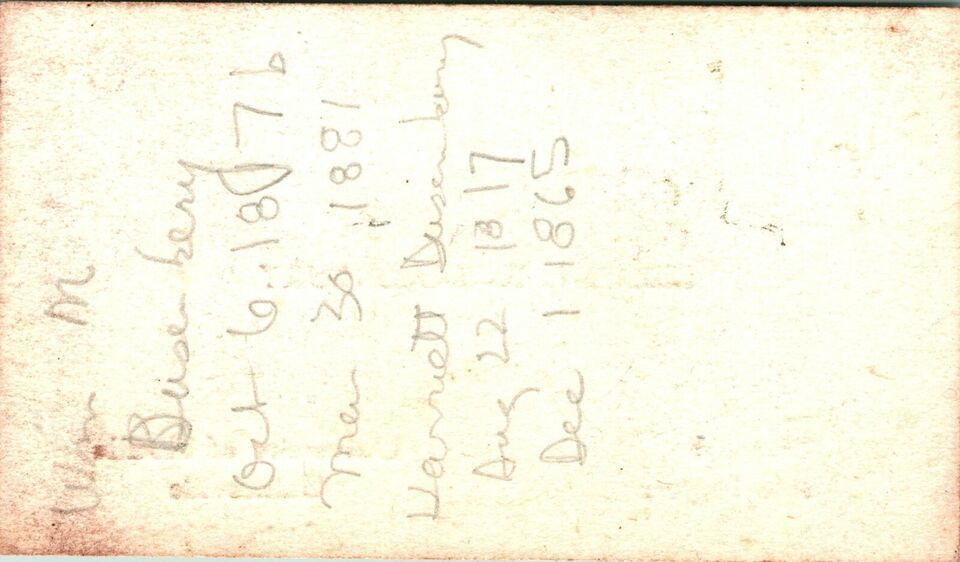 Wm M
Dusenbery
Oct 6 1876
Mar 30 1881
Harriett Dusenbery
Aug 22 1817
Dec 1 1865